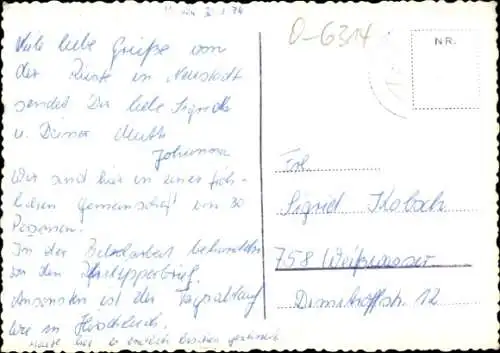 O-6314
NR.
Viele liebe Grüße von
der Rüste in Neustadt
sendet Dir liebe Sigrid
u. Deiner Mutti
Johanna
Wir sind hier in einer fröh-
lichen Gemeinschaft von 30
Personen.
In der Bibelarbeit behandeln
wir den Philipperbrief.
Ansonsten ist der Tagesablauf
wie in
Frl.
Sigrid Kobsch
758 Weißwasser
Dimitroffstr. 12